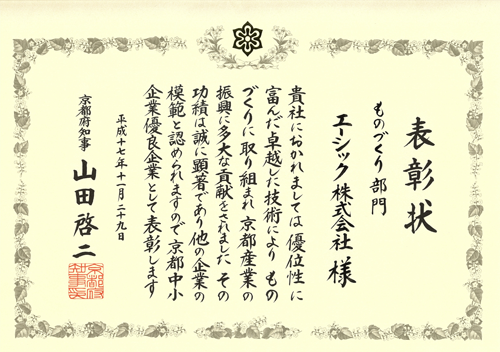 表彰状
ものづくり部門
エーシック株式会社 様
貴社におかれましては 優位性に
富んだ卓越した技術により もの
づくりに取り組まれ 京都産業の
振興に多大な貢献をされました その
功績は誠に顕著であり他の企業の
模範と認められますので 京都中小
企業優良企業として表彰します
平成十七年十一月二十九日
京都府知事 山田啓二
京都府
知事印